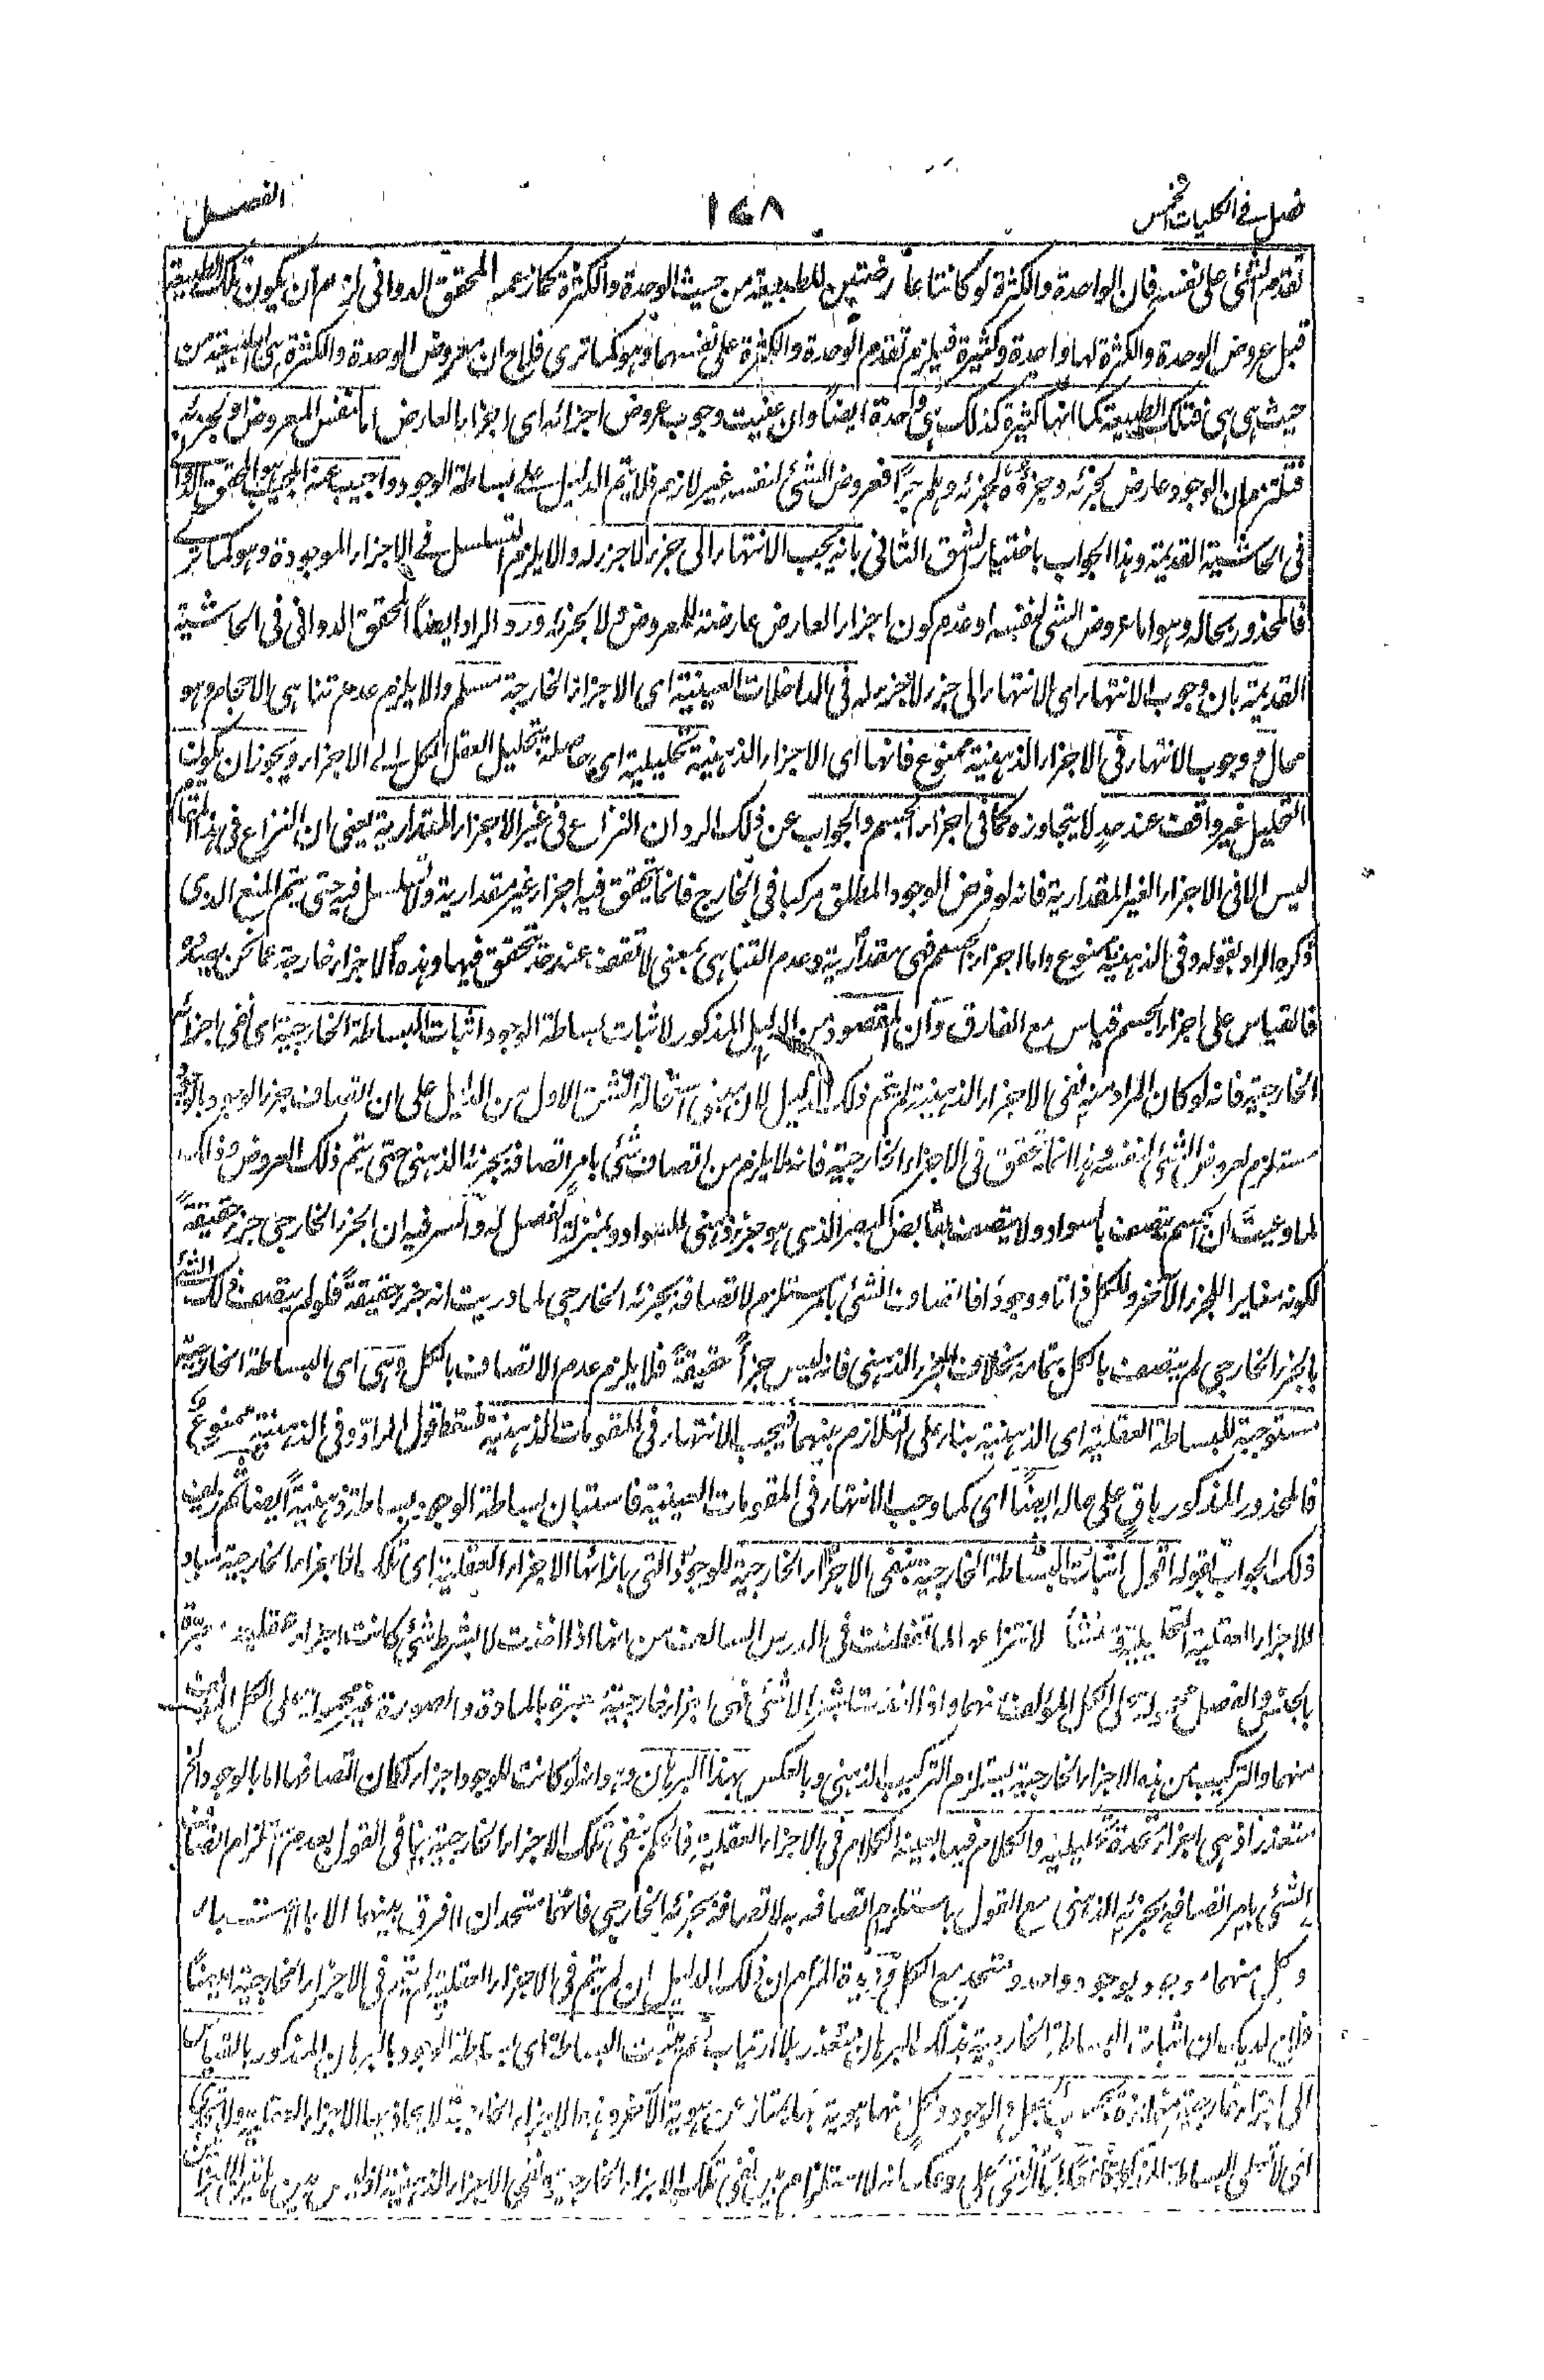 فصل فى الكليات الخمس
١٧٨
الفصل
تقدم الشئ على نفسه فان الواحدة والكثرة لو كانتا عارضتين للطبيعة من حيث الوحدة والكثرة كما زعمه المحقق الدوانى لزم ان يكون تلك الطبيعة
قبل عروض الوحدة والكثرة لها واحدة وكثيرة فيلزم تقدم الوحدة والكثرة على نفسهما وهو كما ترى فلاح ان معروض الوحدة والكثرة هى الطبيعة من
حيث هى هى فتلك الطبيعة كما انها كثيرة كذلك هى واحدة ايضاً وان عنيت وجوب عروض اجزائه اى اجزاء العارض اما لنفس المعروض او لجزئه
فنلتزم ان الوجود عارض لجزئه وجزؤه لجزئه وهلم جرّاً فعروض الشئ لنفسه غير لازم فلا يتم الدليل على بساطة الوجود واجيب عنه المجيب هو المحقق الدوانى
فى الحاشية القديمة وهذا الجواب باختيار الشق الثانى بانه يجب الانتهاء الى جزء لا جزء له والا يلزم التسلسل فى الاجزاء الموجودة وهو كما ترى
فالمحذور بحاله وهو اما عروض الشئ لنفسه او عدم كون اجزاء العارض عارضة للمعروض ولا لجزئه ورد الراد ايضاً المحقق الدوانى فى الحاشية
القديمة بان وجوب الانتهاء اى الانتهاء الى جزء لا جزء له فى الداخلات العينية اى الاجزاء الخارجة مسلم والا يلزم عدم تناهى الاجسام وهو
محال ووجوب الانتهاء فى الاجزاء الذهنية ممنوع فانها اى الاجزاء الذهنية تحليلية اى حاصلة بتحليل العقل الكل الى الاجزاء ويجوز ان يكون
التحليل غير واقف عند حدٍ لا يتجاوزه كما فى اجزاء الجسم والجواب عن ذلك الرد ان النزاع فى غير الاجزاء المقدارية يعنى ان النزاع فى هذا المقام
ليس الا فى الاجزاء الغير المقدارية فانه لو فرض الوجود المطلق مركبا فى الخارج فانما يتحقق فيه اجزاء غير مقدارية ولا تسلسل فيه حتى يتم المنع الذى
ذكره الراد بقوله وفى الذهنية ممنوع واما اجزاء الجسم فهى مقدارية وعدم التناهى بمعنى لا تقف عند حد يتحقق فيها وهذه الاجزاء خارجة عما نحن بصدده
فالقياس على اجزاء الجسم قياس مع الفارق وان المقصود من الدليل المذكور لاثبات بساطة الوجود اثبات البساطة الخارجية اى نفى اجزائه
الخارجية فانه لو كان المراد منه نفى الاجزاء الذهنية لم يتم ذلك الدليل لان مبنى استحالة الشق الاول من الدليل على ان اتصاف جزء الوجود بالوجود
مستلزم لعروض الشئ لنفسه وهذا انما يتحقق فى الاجزاء الخارجية فانه لا يلزم من اتصاف شئ بامر اتصافه بجزئه الذهنى حتى يتم ذلك العروض وذلك
لما وعيت ان الجسم يتصف بالسواد ولا يتصف بقابض البصر الذى هو جزء ذهنى للسواد وبمنزلة الفصل له والسر فيه ان الجزء الخارجى جزء حقيقةً
لكونه مغايرا للجزء الآخر وللكل ذاتا ووجوداً فاتصاف الشئ بامر مستلزم لاتصافه بجزئه الخارجى لما دريت انه جزء حقيقةً فلو لم يتصف ذلك الشئ
بالجزء الخارجى لم يتصف بالكل بتمامه بخلاف الجزء الذهنى فانه ليس جزأً حقيقةً فلا يلزم عدم الاتصاف بالكل وهى اى البساطة الخارجية
مستوجبة للبساطة العقلية اى الذهنية بناء على التلازم بينهما فيجب الانتهاء فى المقومات الذهنية فسقط قول الراد وفى الذهنية ممنوع
فالمحذور المذكور باق على حاله ايضاً اى كما وجب الانتهاء فى المقومات العينية فاستبان بساطة الوجود بساطة ذهنية ايضاً ثم زيف
ذلك الجواب بقوله اقول اثبات البساطة الخارجية بنفى الاجزاء الخارجية للوجود التى بازائها الاجزاء العقلية اى تلك الاجزاء الخارجية مباد
للاجزاء العقلية التحليلية ومنشأ لانتزاعها لما تفطنت فى الدرس السالف من انها اذا اخذت لا بشرط شئ كانت اجزاء عقلية معبرة
بالجنس والفصل محمولة على الكل المؤلف منهما واذا اخذت بشرط لا شئ فهى اجزاء خارجية معبرة بالمادة والصورة غير محمولة على الكل المركب
منهما والتركيب من هذه الاجزاء الخارجية يستلزم التركيب الذهنى وبالعكس بهذا البرهان وهو انه لو كانت للوجود اجزاء لكان اتصافها اما بالوجود الخ
متعذر اذ هى اجزاء متحدة تحليلية والكلام فيها بعينه الكلام فى الاجزاء العقلية فالحكم بنفى تلك الاجزاء الخارجية ينافى القول بعدم استلزام اتصاف
الشئ بامر اتصافه بجزئه الذهنى مع القول باستلزام اتصافه به لاتصافه بجزئه الخارجى فانهما متحدان لا فرق بينهما الا بالاعتبار
وكل منهما موجود بوجود واحد ومتحد مع الكل وزبدة المرام ان ذلك الدليل ان لم يتم فى الاجزاء العقلية لم يتم فى الاجزاء الخارجية ايضاً
اثبات البساطة الخارجية بذلك البرهان متعذر بلا ارتياب نعم يثبت البساطة اى بساطة الوجود بالبرهان المذكور بالقياس
الى اجزاء خارجية متمايزة بحسب الجعل والوجود ولكل منها هوية بها يمتاز عن هوية الآخر وهذه الاجزاء الخارجية لا يحاذيها الاجزاء العقلية